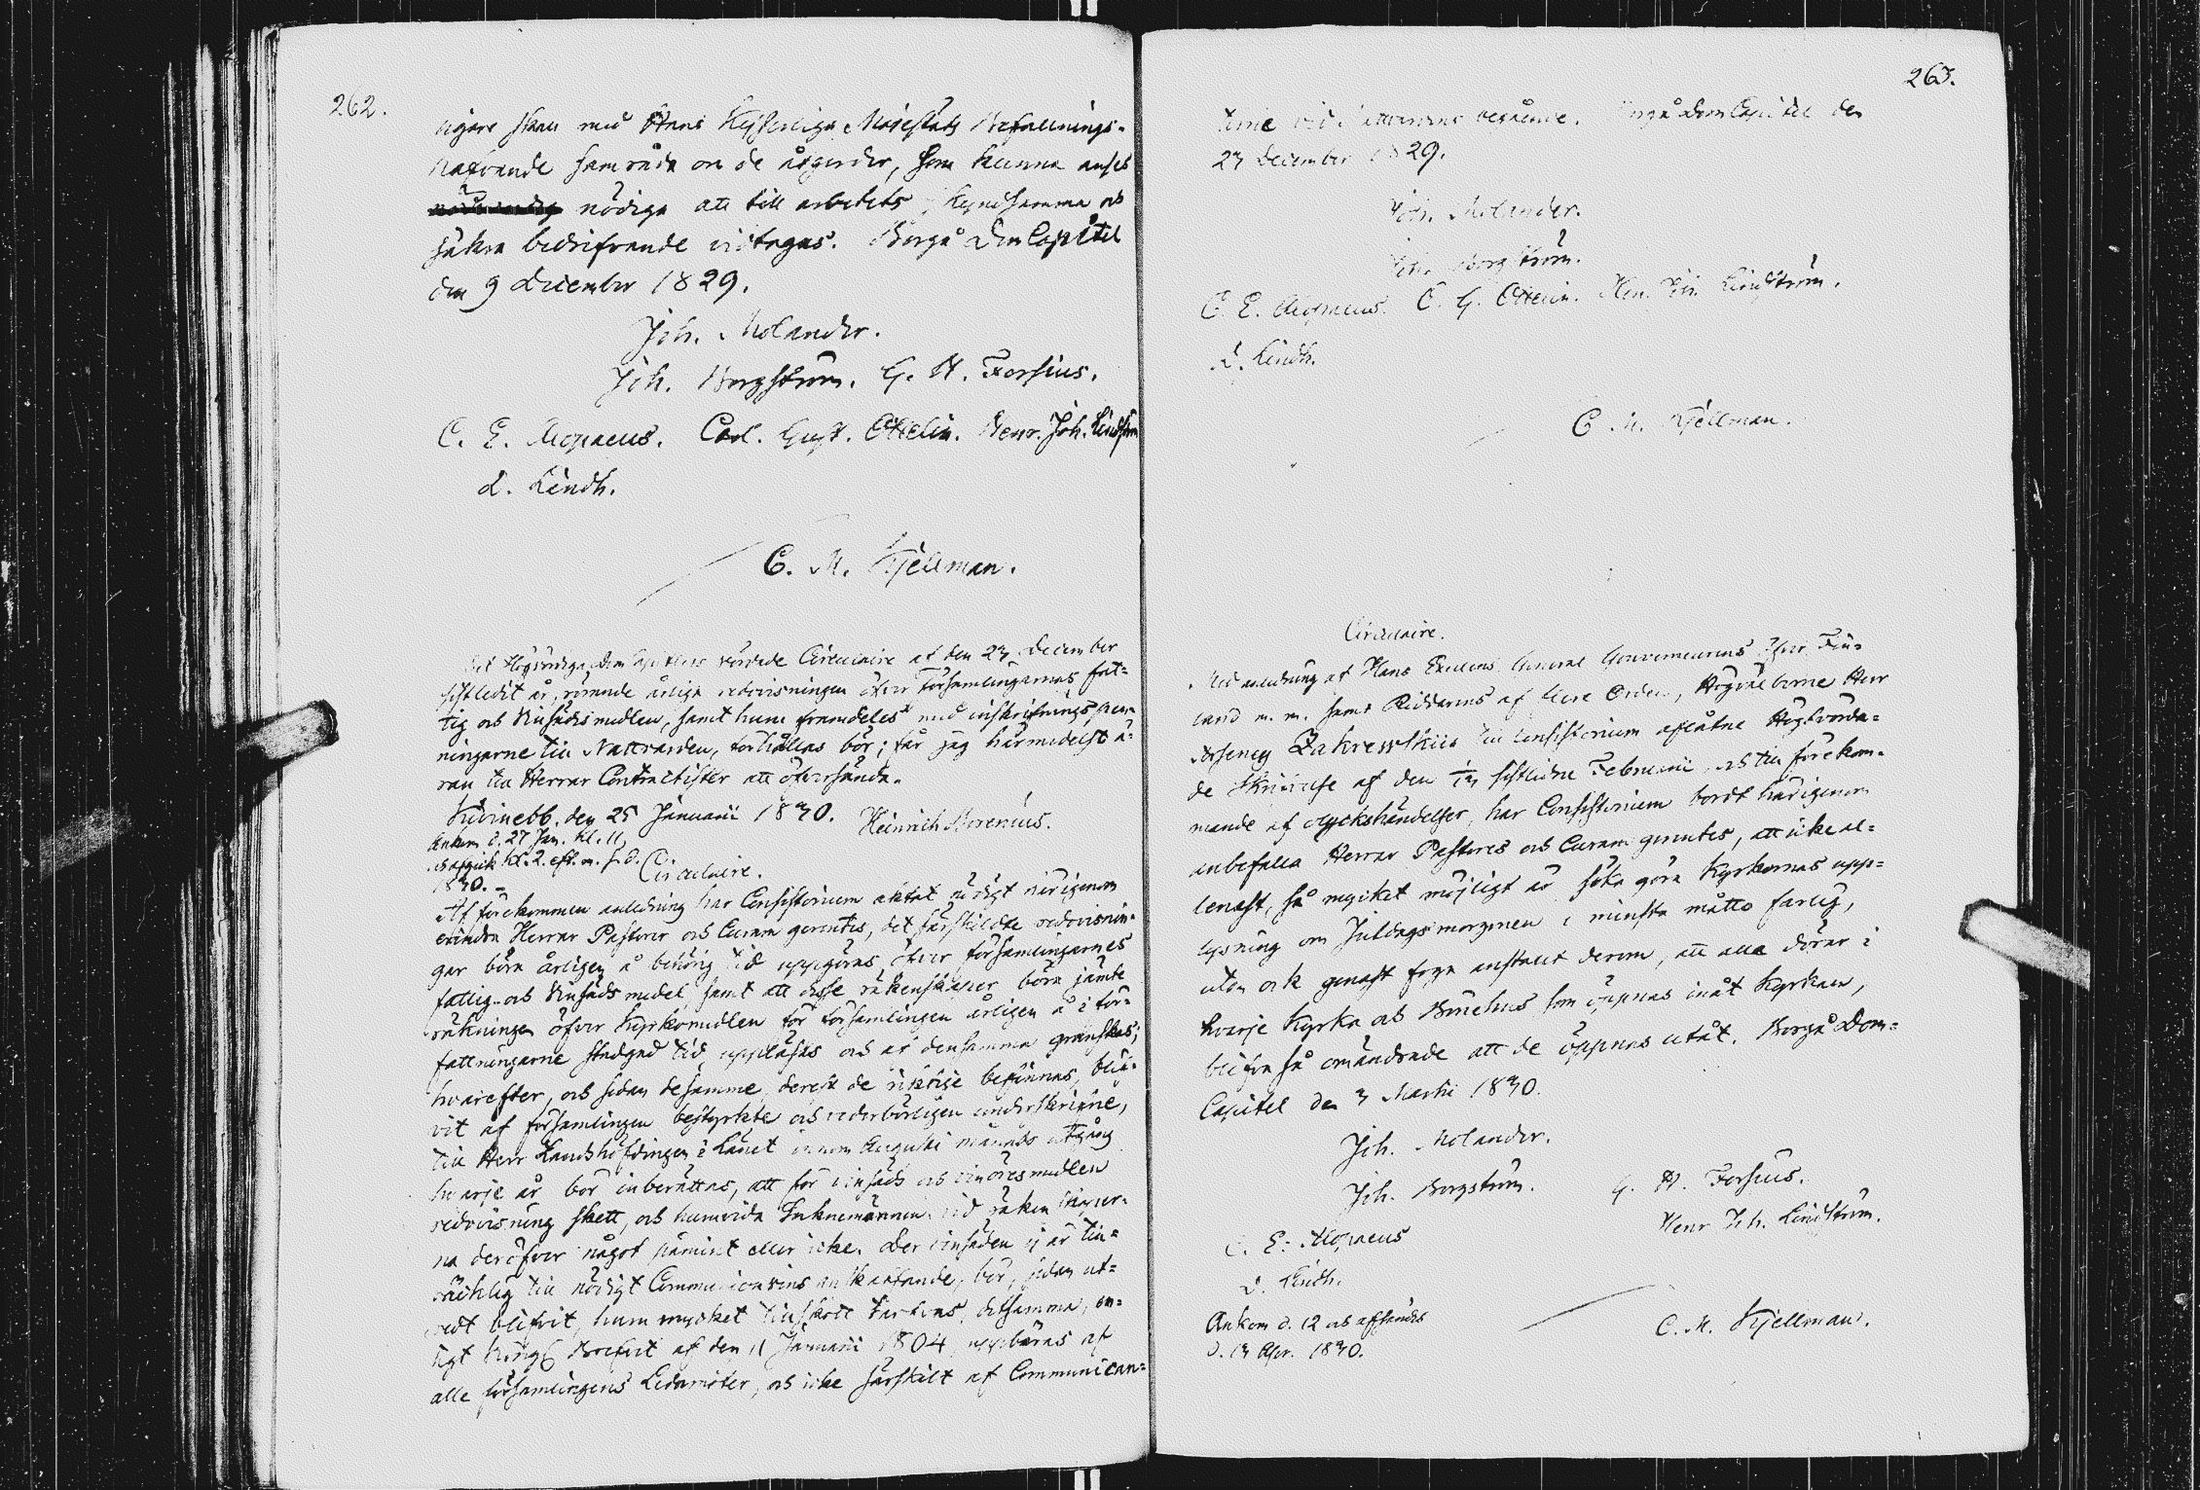 262.
ligare skall med Hans Kejserliga Majestäts Befallnings-
hafvande samråda om de åtgerder, som kunna anses
nödiga att till arbetets skyndsamma och
säkra bedrifvande vidtagas. Borgå DomCapitel
den 9 December 1829.
Joh. Molander.
Joh. Borgström. G. H. Forsius.
C. E. Alopaeus. Carl. Gust. Ottelin. Henr. Joh. Lindström
L. Lindh.
C. M. Kjellman.
Det Högvördiga DomCapitlets vördade Circulaire af den 23 December
sistledit år, rörande årliga redovisningen öfver Församlingarnas fat-
tig och Vinsädsmedlen, samt huru framdeles med inskrifnings pen-
ningarne till Nattvarden, förhållas bör; får jag härmedelst ä-
ran till Herrar Contractister att öfversända.
Kivinebb. den 25 Januarii 1830. Heinrich Morenius.
Ankom d. 27 Jan. kl. 11,
och afgick kl. 2. eft. m. s. d.
1830.-
Circulaire.
Af förekommen anledning har Consistorium aktat nödigt härigenom
erindra Herrar Pastorer och Curam gerentes, det särskildte redovisnin-
gar böra årligen å behörig tid uppgöras öfver församlingarnes
fattig- och Vinsäds medel, samt att desse räkenskaper böra jämte
räkningen öfver Kyrkomedlen för församlingen årligen å i för-
fattningarne stadgad tid uppläsas och af densamma granskas;
hvarefter, och sedan desamme, derest de riktige befinnas, blif-
vit af församlingen bestyrkte och vederbörligen underskrifne,
till Herr Landshöfdingen i Länet innom Augusti månads utgång
hvarje år bör inberättas, att för vinsäds och vinöresmedlen
redovisning skett, och huruvida Socknemännen vid räkenskaper-
na deröfver något påmint eller icke. Der vinsäden ej är till-
räcklig till nödigt Communionvins anskaffande, bör, sedan ut-
redt blifvit, huru mycket tillskott fordras, detsamma, en-
ligt Kongl Brefvet af den 11 Januarii 1804 uppbäras af
alle församlingens Ledamöter, och icke särskilt af Communican-
263.
terne vid inskrifvningens begående. Borgå DomCapitel den
23 December 1829.
Joh. Molander.
Joh. Borgström.
C. E. Alopaeus. C. G. Ottelin. Hen. Joh. Lindström.
L. Lindh.
C. M. Kjellman.
Circulaire.
Med anledning af Hans Excellens General Gouverneurens öfver Fin-
land m. m. samt Riddarens af flere Orden, Högvälborne Herr
Arseney Zakrewskiis till Consistorium aflåtne Högtvörda-
de Skrifvelse af den 1/13 sistlidne Februarii, och till förekom-
mande af olyckshändelser, har Consistorium bordt härigenom
anbefalla Herrar Pastores och Curam gerentes, att icke al-
lenast, så mycket möjligt är söka göra Kyrkornas upp-
lysning om Juldagsmorgonen i minsta måtto farlig,
utan ock genast foga anstalt derom, att alla dörar i
hvarje Kyrka och Bönehus som öppnas inåt Kyrkan,
blifva så omändrade att de öppnas utåt. Borgå Dom-
Capitel den 3 Martii 1830.
Joh. Molander.
Joh. Borgström. G. H. Forsius.
C. E. Alopaeus Henr Joh. Lindström.
L. Lindh.
Ankom d. 12 och afsändes
d. 13 Apr. 1830.
C. M. Kjellman.